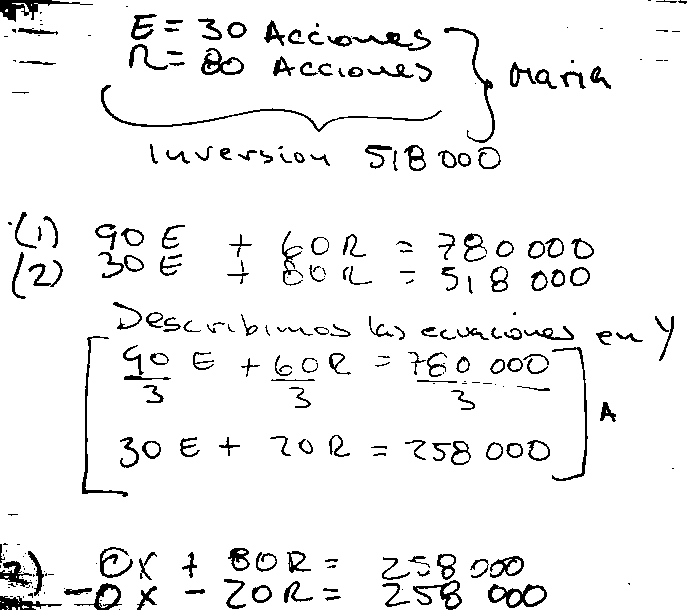 E = 30 Acciones
R = 80 Acciones
} Maria
Inversion 518 000
(1) 90 E + 60 R = 780 000
(2) 30 E + 80 R = 518 000
Describimos las ecuaciones en Y
90/3 E + 60/3 R = 780 000/3
A
30 E + 20 R = 258 000
2) 0X + 80R = 258 000
-0X - 20R = 258 000